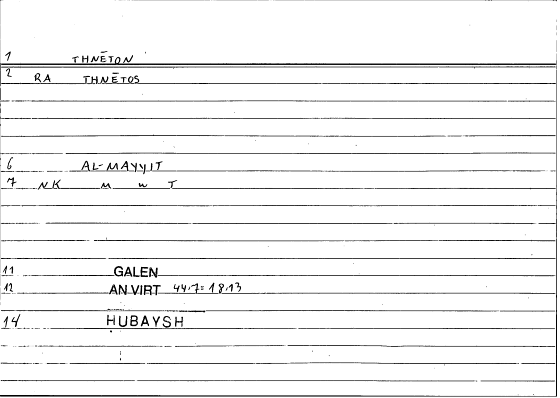 1 THNĒTON
2 RA THNĒTOS
6 AL-MAYYIT
7 NK M W T
11 GALEN
12 AN VIRT 44.7=18.13
14 HUBAYSH